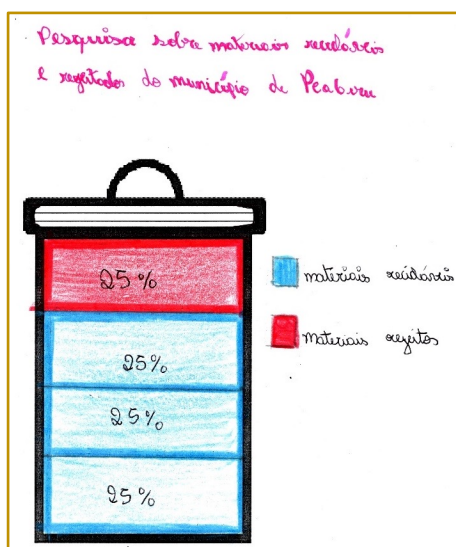 Pesquisa sobre materiais recicláveis
e rejeitados do município de Peabiru
25%
25%
25%
25%
materiais recicláveis
materiais rejeitos